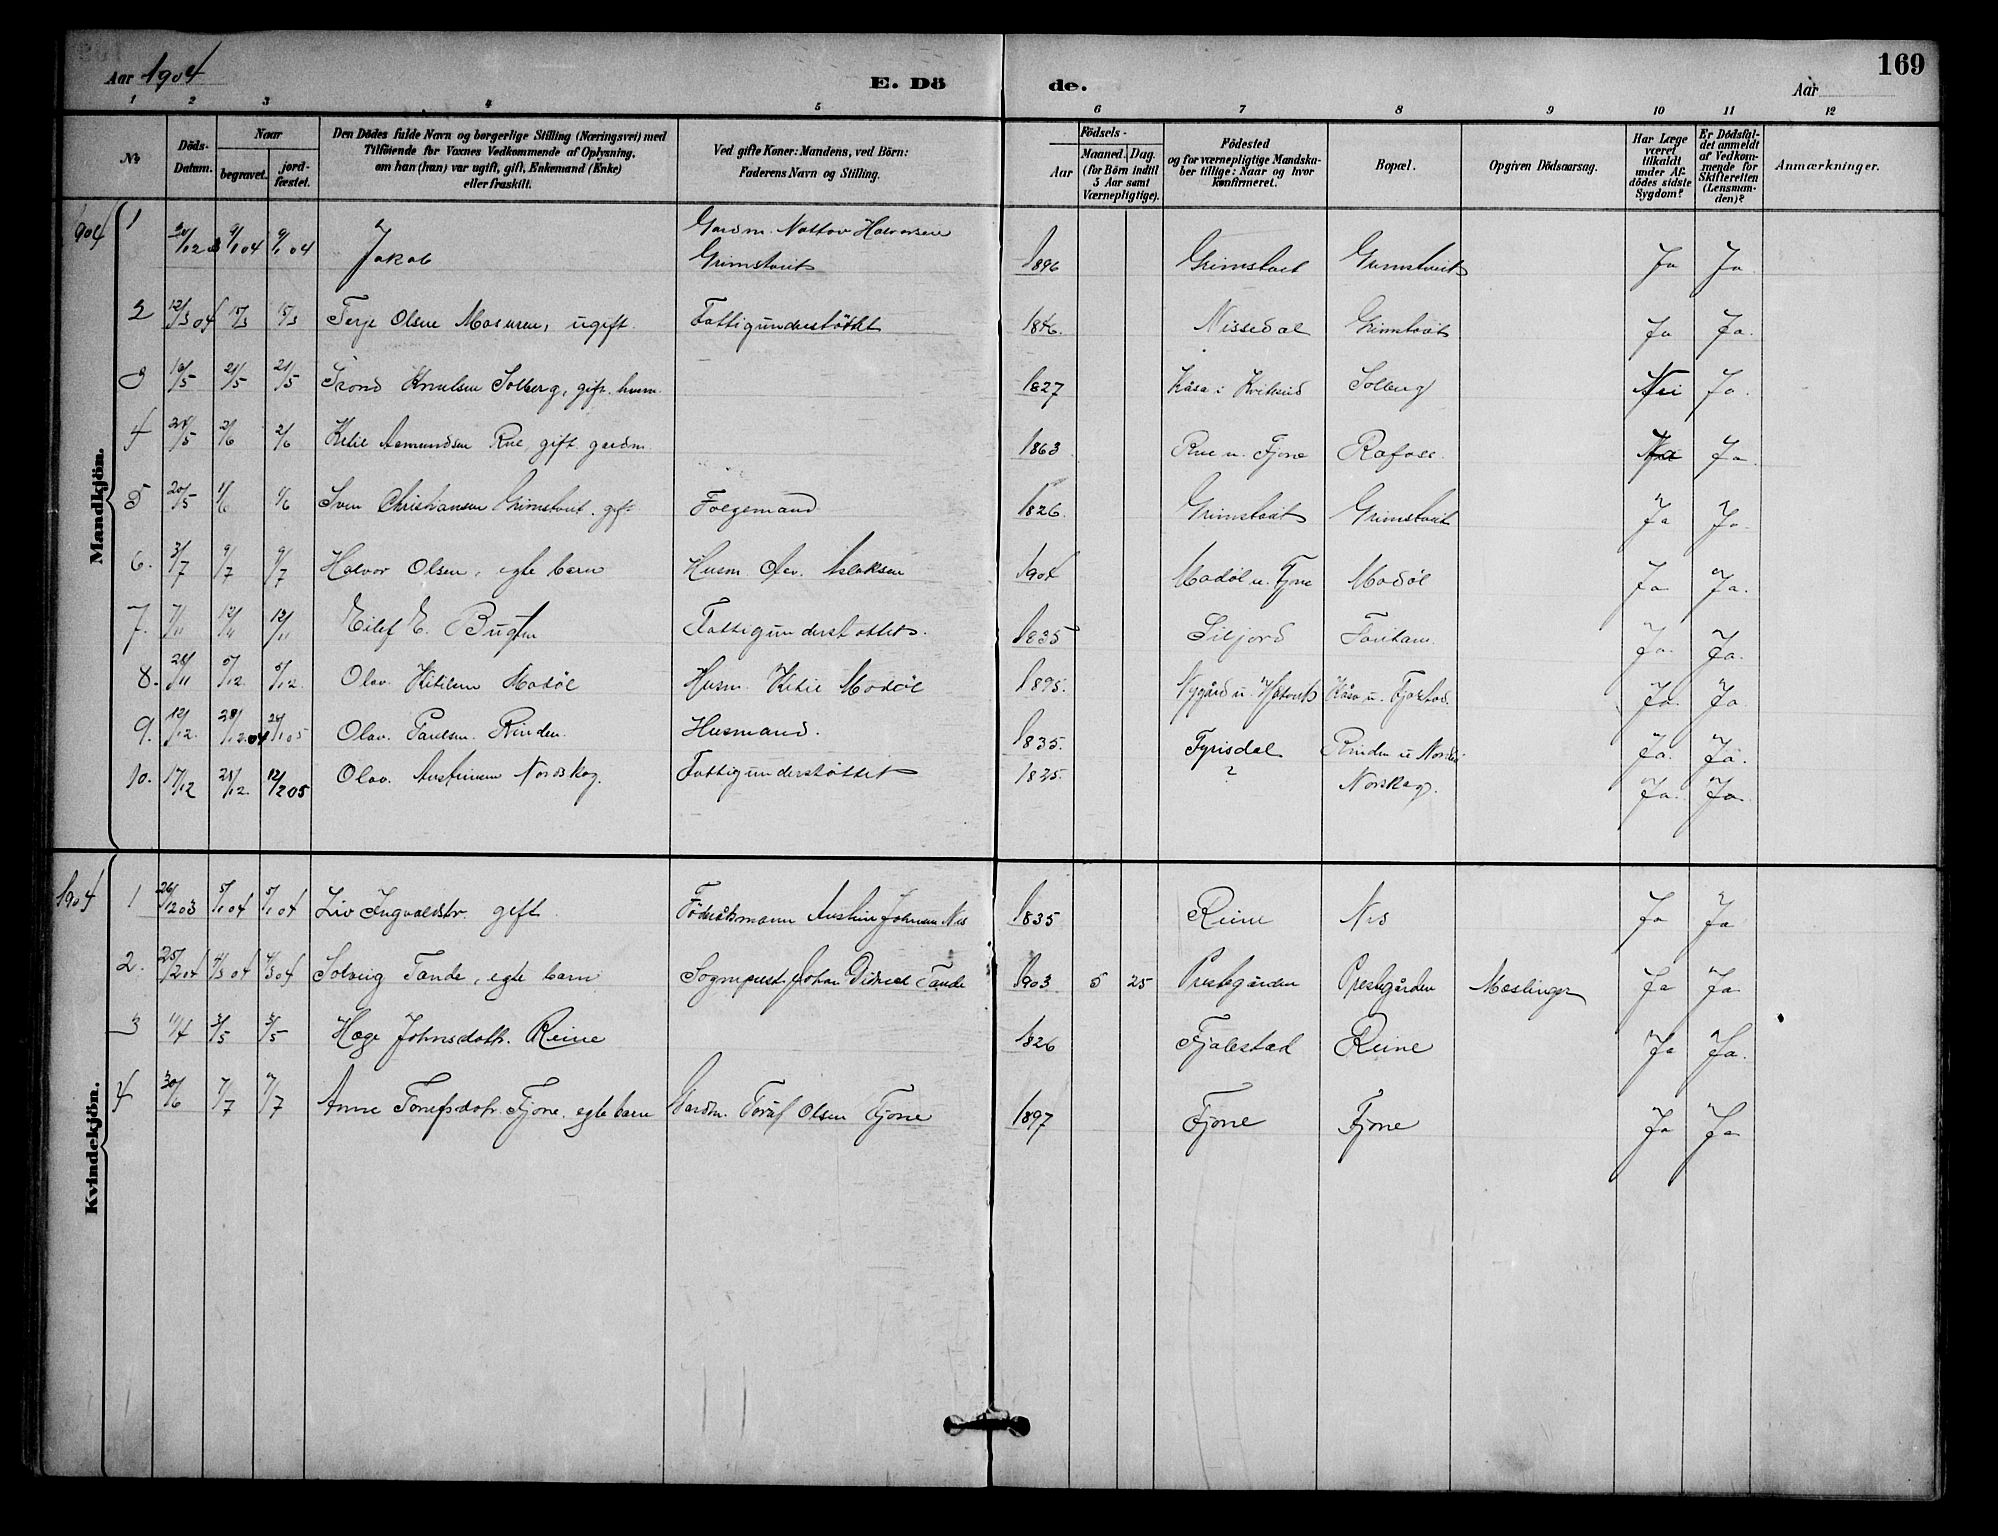 169
Aar 1904
E. Dö
de.
Aar
1 2 3 4 5 6 7 8 9 10 11 12
№ Döds-Datum. Naar begravet. jord-fæstet. Den Dödes fulde Navn og borgerlige Stilling (Næringsvei) med Tilföiende for Voxnes Vedkommende af Oplysning, om han (hun) var ugift, gift, Enkemand (Enke) eller fraskilt. Ved gifte Koner: Mandens, ved Börn: Faderens Navn og Stilling. Födsels- Aar Maaned. Dag. (for Börn indtil 5 Aar samt Værnepligtige). Födested og for værnepligtige Mandskaber tillige: Naar og hvor konfirmeret. Bopæl. Opgiven Dödsaarsag. Har Læge været tilkaldt under Afdödes sidste Sygdom? Er Dödsfaldet anmeldt af Vedkommende for Skifteretten (Lensmanden)? Anmærkninger.
Mandkjön.
1904 1 9/1 04 9/1 04 Jakob Gardm. Halvorsen
Grimstveit 1896 Grimstveit Grimstveit Ja Ja
2 12/3 04 15/3 15/3 Terje Olsen ugift. Fattigunderstöttet 1846. Nissedal Grimstveit Ja Ja.
3 16/5 21/5 21/5 Trond Knutsen Solberg, gift. husm. 1827 Kåsa i Kviteseid Solberg Nei Ja.
4 28/5 2/6 2/6 Ketil Aamundsen Rue, gift gardm. 1863 Rue u. Fjone Rafoss. Ja.
5 20/5 Sven Christiansen Grimstveit. gift Folgemand 1826. Grimstveit Grimstveit Ja Ja.
6. 3/7 9/7 9/7 Halvor Olsen, egte barn Husm. Olav Aslaksen 1904 Modöl u. Fjone Modöl Ja Ja.
7. 7/11 12/11 12/11 Eilef E. Fattigunderstottet. 1835 Siljord Ja. Ja.
8. 28/11 5/12. 5/12. Olav Ketilsen Modöl Husm. Ketil Modöl 1895. Nygård u. Kåsa u. Ja. Ja
9. 12/12. 28/12 04 Olav Paulsen Rinden. Husmand. 1835. Fyrisdal Rinden u. Ja. Ja.
10. 17/12 28/12. 12/2 05 Olav Austinsen Nordskog. Fattigunderstöttet 1825. ? Norskog. Ja. Ja.
Kvindekjön.
1904 1 26/12 03 5/1 04 5/1 04 Liv Ingvaldstr. gift. Föderåtsmann Austin Johnsen Nes 1835 Reine Nes Ja Ja
2. 25/2 04 4/3 04 4/3 04 Solveig Tande, egte barn Sogneprest Johan Didrik Tande 1903 5 25 Prestegården Prestegården Meslinger Ja Ja.
3 11/4 3/5 3/5 Hæge Johnsdottr. Reine 1826 Fjalestad Reine Ja Ja.
4 30/6 7/7 7/7 Anne Torufsdotr. Fjone. egte barn Gardm. Toruf Olsen Fjone 1897 Fjone Fjone Ja Ja